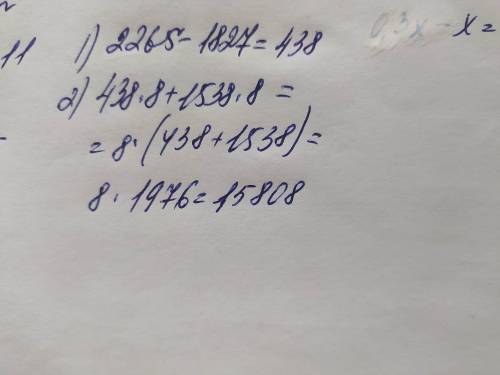 11 1) 2265 - 1827 = 438
2) 438 · 8 + 1538 · 8 =
= 8 · (438 + 1538) =
8 · 1976 = 15808
0,3x - x =